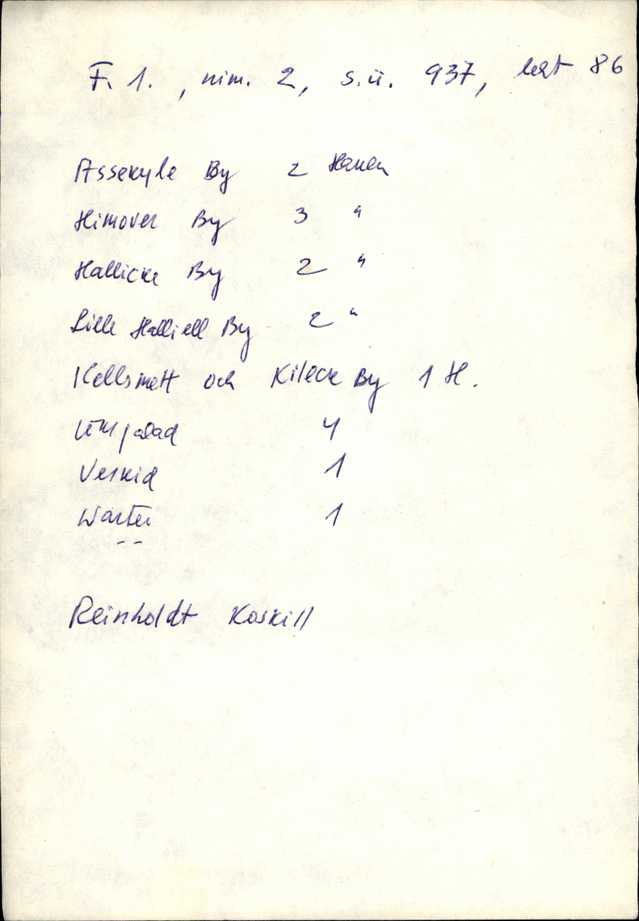 F. 1. , nim. 2, s.ü. 937, leht 86
Assekyle By 2 Haken
Himover By 3 "
Hallicke By 2 "
Lille Halliell By 2 "
Kellsmett och Kileck By 1 H.
4
Verkid 1
Warter 1
Reinholdt Koskill